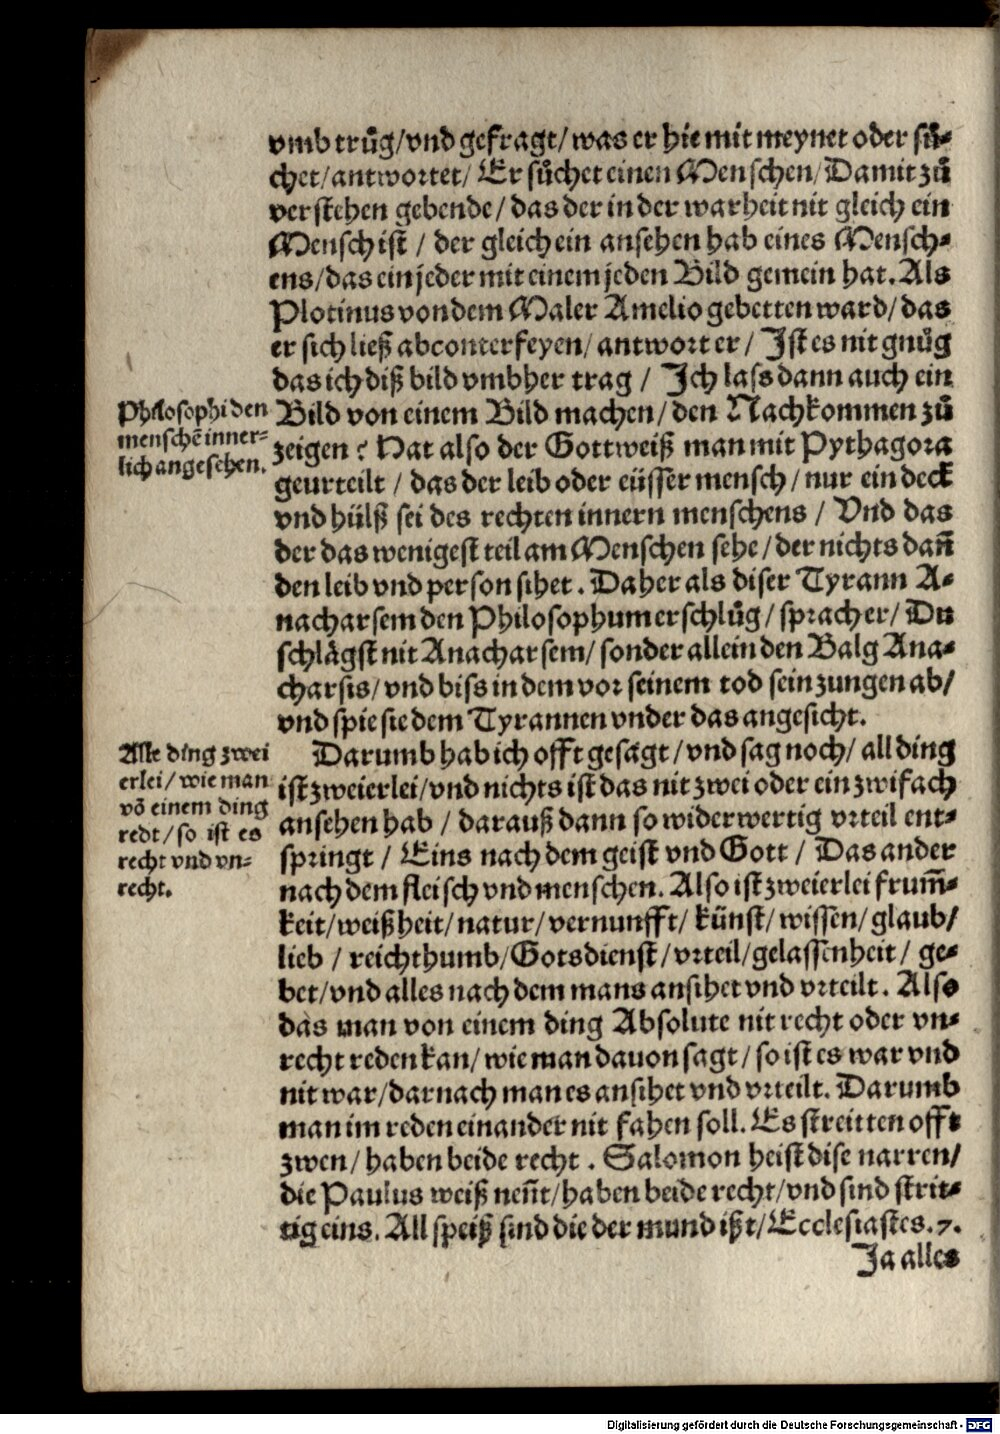 vmb truͦg/vnd gefragt/was er hie mit meynet oder suͦ-
chet/antwortet/ Er suͦchet einen Menschen/Damit zuͦ
verstehen gebende/das der in der warheit nit gleich ein
Mensch ist / der gleich ein ansehen hab eines Mensch-
ens/das ein jeder mit einem jeden Bild gemein hat. Als
Plotinus von dem Maler Amelio gebetten ward/das
er sich ließ abconterfeyen/antwort er/ Jst es nit gnuͦg
das ich diß bild vmbher trag / Jch lass dann auch ein
Bild von einem Bild machen/den Nachkommen zuͦ
zeigen? Hat also der Gottweiß man mit Pythagora
geurteilt / das der leib oder eüsser mensch/nur ein deck
vnd hülß sei des rechten innern menschens / Vnd das
der das wenigest teil am Menschen sehe/der nichts dañ
den leib vnd person sihet. Daher als diser Tyrann A-
nacharsem den Philosophum erschluͦg/sprach er/ Du
schlaͤgst nit Anacharsem/sonder allein den Balg Ana-
charsis/vnd biss in dem vor seinem tod sein zungen ab/
vnd spie sie dem Tyrannen vnder das angesicht.
Philosophi den
menschē inner-
lich angesehen.
Darumb hab ich offt gesagt/vnd sag noch/all ding
ist zweierlei/vnd nichts ist das nit zwei oder ein zwifach
ansehen hab / darauß dann so widerwertig vrteil ent-
springt / Eins nach dem geist vnd Gott / Das ander
nach dem fleisch vnd menschen. Also ist zweierlei frum̄-
keit/weißheit/natur/vernunfft/künst/wissen/glaub/
lieb / reichthumb/Gotsdienst/vrteil/gelassenheit/ ge-
bet/vnd alles nach dem mans ansihet vnd vrteilt. Also
das man von einem ding Absolute nit recht oder vn-
recht reden kan/wie man dauon sagt/so ist es war vnd
nit war/darnach man es ansihet vnd vrteilt. Darumb
man im reden einander nit fahen soll. Es streitten offt
zwen/haben beide recht. Salomon heist dise narren/
die Paulus weiß neñt/haben beide recht/vnd sind strit-
tig eins. All speiß sind die der mund ißt/Ecclesiastes.7.
Alle ding zwei
erlei/wie man
vō einem ding
redt/so ist es
recht vnd vn-
recht.
Ja alles
Digitalisierung gefördert durch die Deutsche Forschungsgemeinschaft - DFG